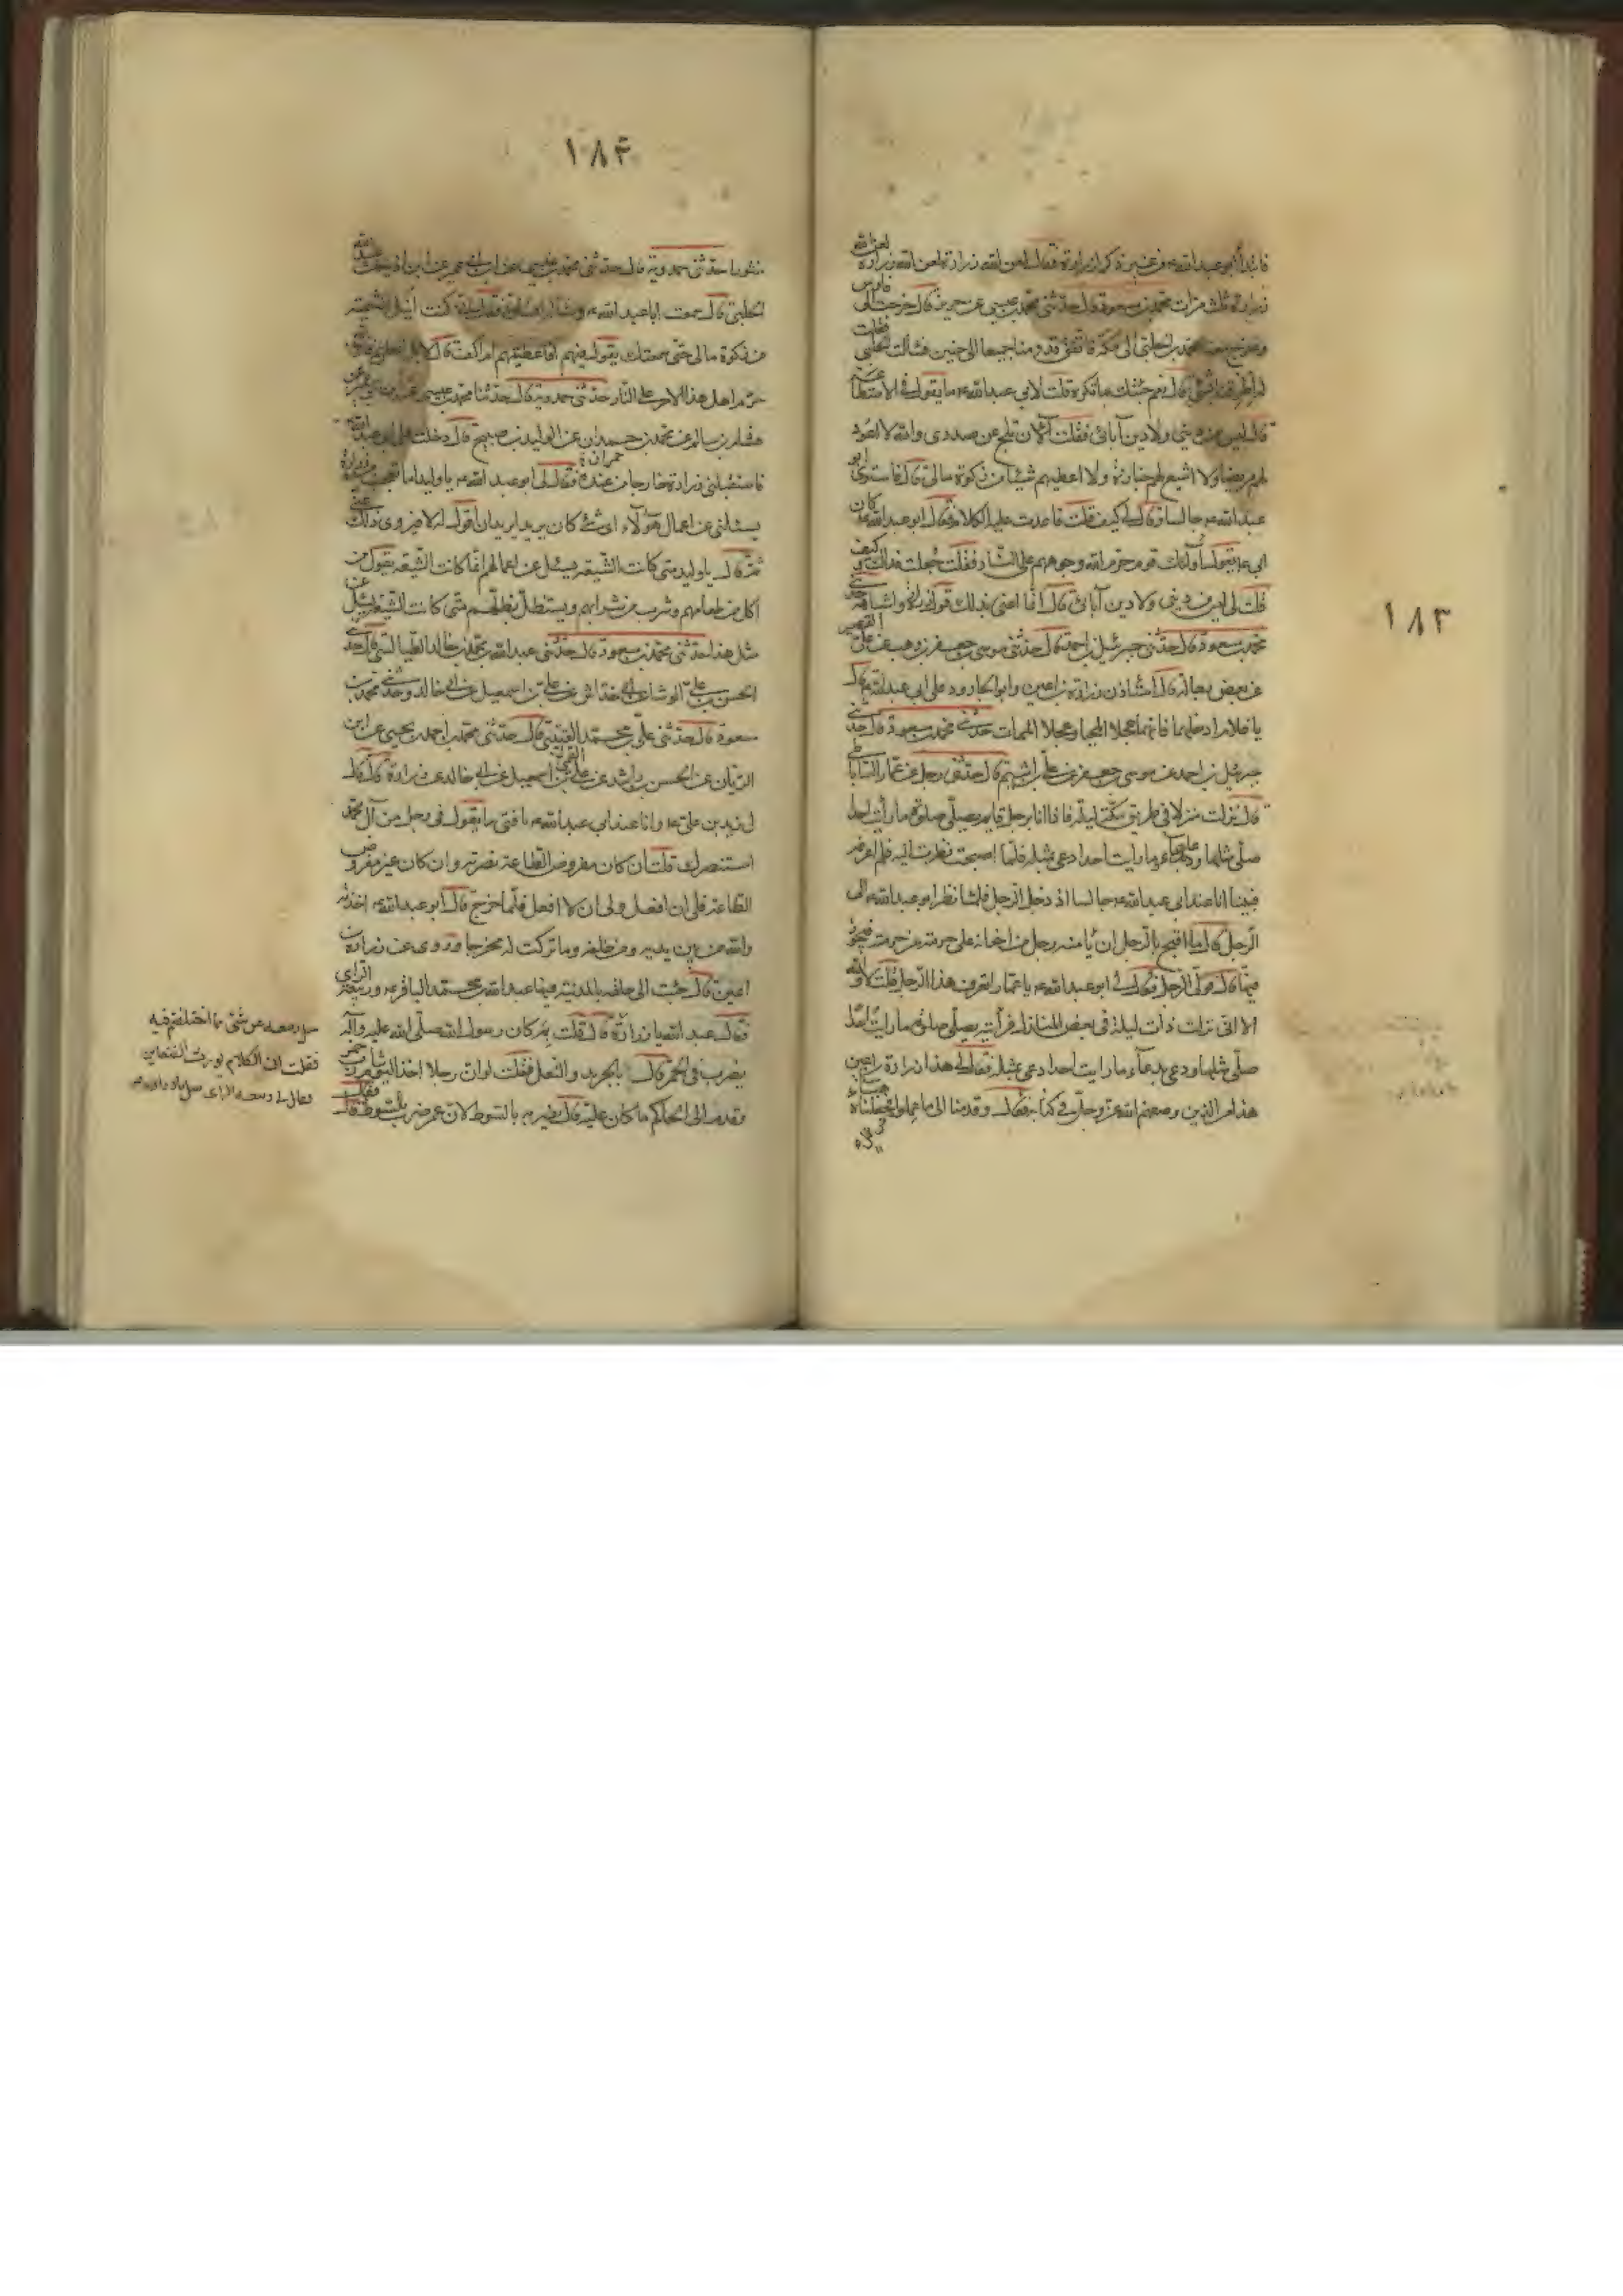 ١٨٣
فابتدأ ابو عبد الله ع من غير ذكر لزرارة فقال لعن الله زرارة لعن الله زرارة لعن الله
زرارة ثلث مرات محمد بن مسعود قال حدثنى محمد بن عيسى عن حريز قال خرجت الى فارس
وخرج معنا محمد الحلبى الى مكة فاتفق قدومنا جميعا الى حنين فسألت الحلبى فقلت
له اطرفنا بشئ قال نعم جئتك بما تكره قلت لابى عبد الله ع ما يقول فى الاستطاعة
قال ليس من دينى ولا دين آبائى فقلت الآن ثلج عن صدرى والله لا اعود
لهم مريضا ولا اشيع لهم جنازة ولا اعطيهم شيئا من زكوة مالى قال فاستوى ابو
عبد الله ع جالسا وقال لى كيف قلت فاعدت عليه الكلام فقال ابو عبد الله ع كان
ابى ع يقول اولئك قوم حرم الله وجوههم على النار فقلت جعلت فداك وكيف
قلت لى ليس من دينى ولا دين آبائى قال انما اعنى بذلك قول زرارة واشباهه حدثنى
محمد بن مسعود قال حدثنى جبرئيل بن احمد قال حدثنى موسى بن جعفر بن وهب عن على القصير
عن بعض رجاله قال استأذن زرارة بن اعين وابو الجارود على ابى عبد الله ع قال
يا غلام ادخلهما فانهما عجلا المحيا وعجلا الممات حدثنى محمد بن مسعود قال حدثنى
جبرئيل بن احمد عن موسى بن جعفر عن على بن اشيم قال حدثنى رجل عن عمار الساباطى
قال نزلت منزلا فى طريق مكة ليلة فاذا انا برجل قايم يصلى صلوة ما رأيت احدا
صلى مثلها ودعا بدعاء ما رايت احدا دعى بمثله فلما اصبحت نظرت اليه فلم اعرفه
فبينا انا عند ابى عبد الله ع جالسا اذ دخل الرجل فلما نظر ابو عبد الله ع الى
الرجل قال ما اقبح بالرجل ان يأمنه رجل من اخوانه على حرمة من حرمته فيخونه
فيها قال فولى الرجل فقال لى ابو عبد الله ع يا عمار اتعرف هذا الرجل قلت لا والله
الا انى نزلت ذات ليلة فى بعض المنازل فرأيته يصلى صلوة ما رايت احدا
صلى مثلها ودعى بدعاء ما رايت احدا دعى بمثله فقال لى هذا زرارة بن اعين
هذا من الذين وصفهم الله عز وجل فى كتابه فقال وقدمنا الى ما عملوا فجعلناه هباء
١٨۴
منثورا حدثنى حمدويه قال حدثنى محمد بن عيسى عن ابن ابى عمير عن ابن اذينة عن عبيد الله
الحلبى قال سمعت ابا عبد الله ع وسأله انسان فقال له انى كنت انيل التيمية
من زكوة مالى حتى سمعتك يقول فيهم افاعطيهم ام اكف قال لا بل اعطهم فان الله
حرم اهل هذا الامر على النار حدثنى حمدويه قال حدثنا محمد بن عيسى عن
هشام بن سالم عن محمد بن حمران عن الوليد بن صبيح قال دخلت على ابى عبد الله
حمران
فاستقبلنى زرارة خارجا من عنده فقال لى ابو عبد الله ع يا وليد اما تعجب من زرارة
يسئلنى عن اعمال هؤلاء اى شئ كان يريد ايريد ان اقول له لا فيروى ذلك عنى
ثم قال يا وليد متى كانت الشيعة يسئل عن اعمالهم انما كانت الشيعة يقول من
اكل من طعامهم وشرب من شرابهم ويستظل بظلهم متى كانت الشيعة يسئل عن
مثل هذا حدثنى محمد بن مسعود قال حدثنى عبد الله بن محمد بن خالد الطيالسى قال حدثنى
الحسن بن على الوشاء عن ابى خداش عن على بن اسمعيل عن ابى خالد وحدثنى محمد بن
مسعود قال حدثنى على بن محمد القمى قال حدثنى محمد بن احمد بن يحيى عن ابن
الريان عن الحسن بن راشد عن على بن اسمعيل عن ابى خالد عن زرارة قال قال
لى زيد بن على ع وانا عند ابى عبد الله ع يا فتى ما يقول فى رجل من آل محمد
استنصرك قلت ان كان مفروض الطاعة نصرته وان كان غير مفروض
الطاعة فلى ان افعل ولى ان لا افعل فلما خرج قال ابو عبد الله ع اخذته
والله من بين يديه ومن خلفه وما تركت له مخرجا وروى عن زرارة بن
اعين قال جئت الى حلقة بالمدينة فيها عبد الله بن محمد الباقر ع وربيعة الراى
فقال عبد الله يا زرارة قال قلت بم كان رسول الله صلى الله عليه وآله
يضرب فى الخمر قال بالجريد والنعل فقلت لو ان رجلا اخذ اليوم شارب خمر
وقدم الى الحاكم ما كان عليه قال يضربه بالسوط لان عمر ضرب بالسوط فقال
سل ربيعة عن شئ مما اختلفتم فيه
فقلت ان الكلام يورث الضغاين
فقال لى ربيعة الراى سل يا زرارة